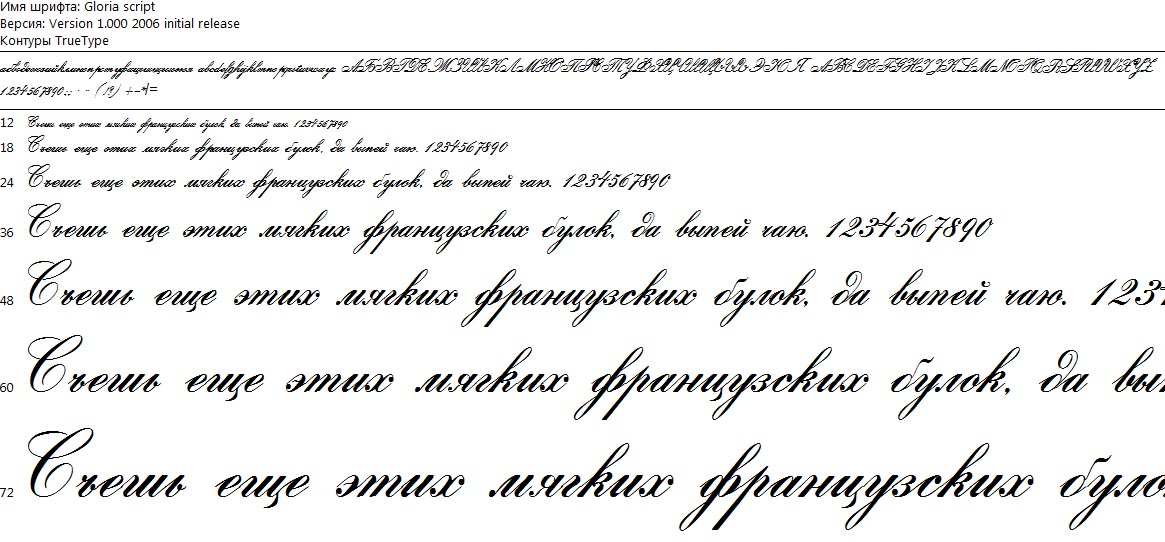 Имя шрифта: Gloria script
Версия: Version 1.000 2006 initial release
Контуры TrueType
абвгдежзийклмнопрстуфхцчшщъыьэюя abcdefghijklmnopqrstuvwxyz АБВГДЕЖЗИЙКЛМНОПРСТУФХЦЧШЩЪЫЬЭЮЯ ABCDEFGHIJKLMNOPQRSTUVWXYZ
1234567890.:,; ' " (!?) +-*/=
12 Съешь еще этих мягких французских булок, да выпей чаю. 1234567890
18 Съешь еще этих мягких французских булок, да выпей чаю. 1234567890
24 Съешь еще этих мягких французских булок, да выпей чаю. 1234567890
36 Съешь еще этих мягких французских булок, да выпей чаю. 1234567890
48 Съешь еще этих мягких французских булок, да выпей чаю. 123
60 Съешь еще этих мягких французских булок, да вып
72 Съешь еще этих мягких французских було